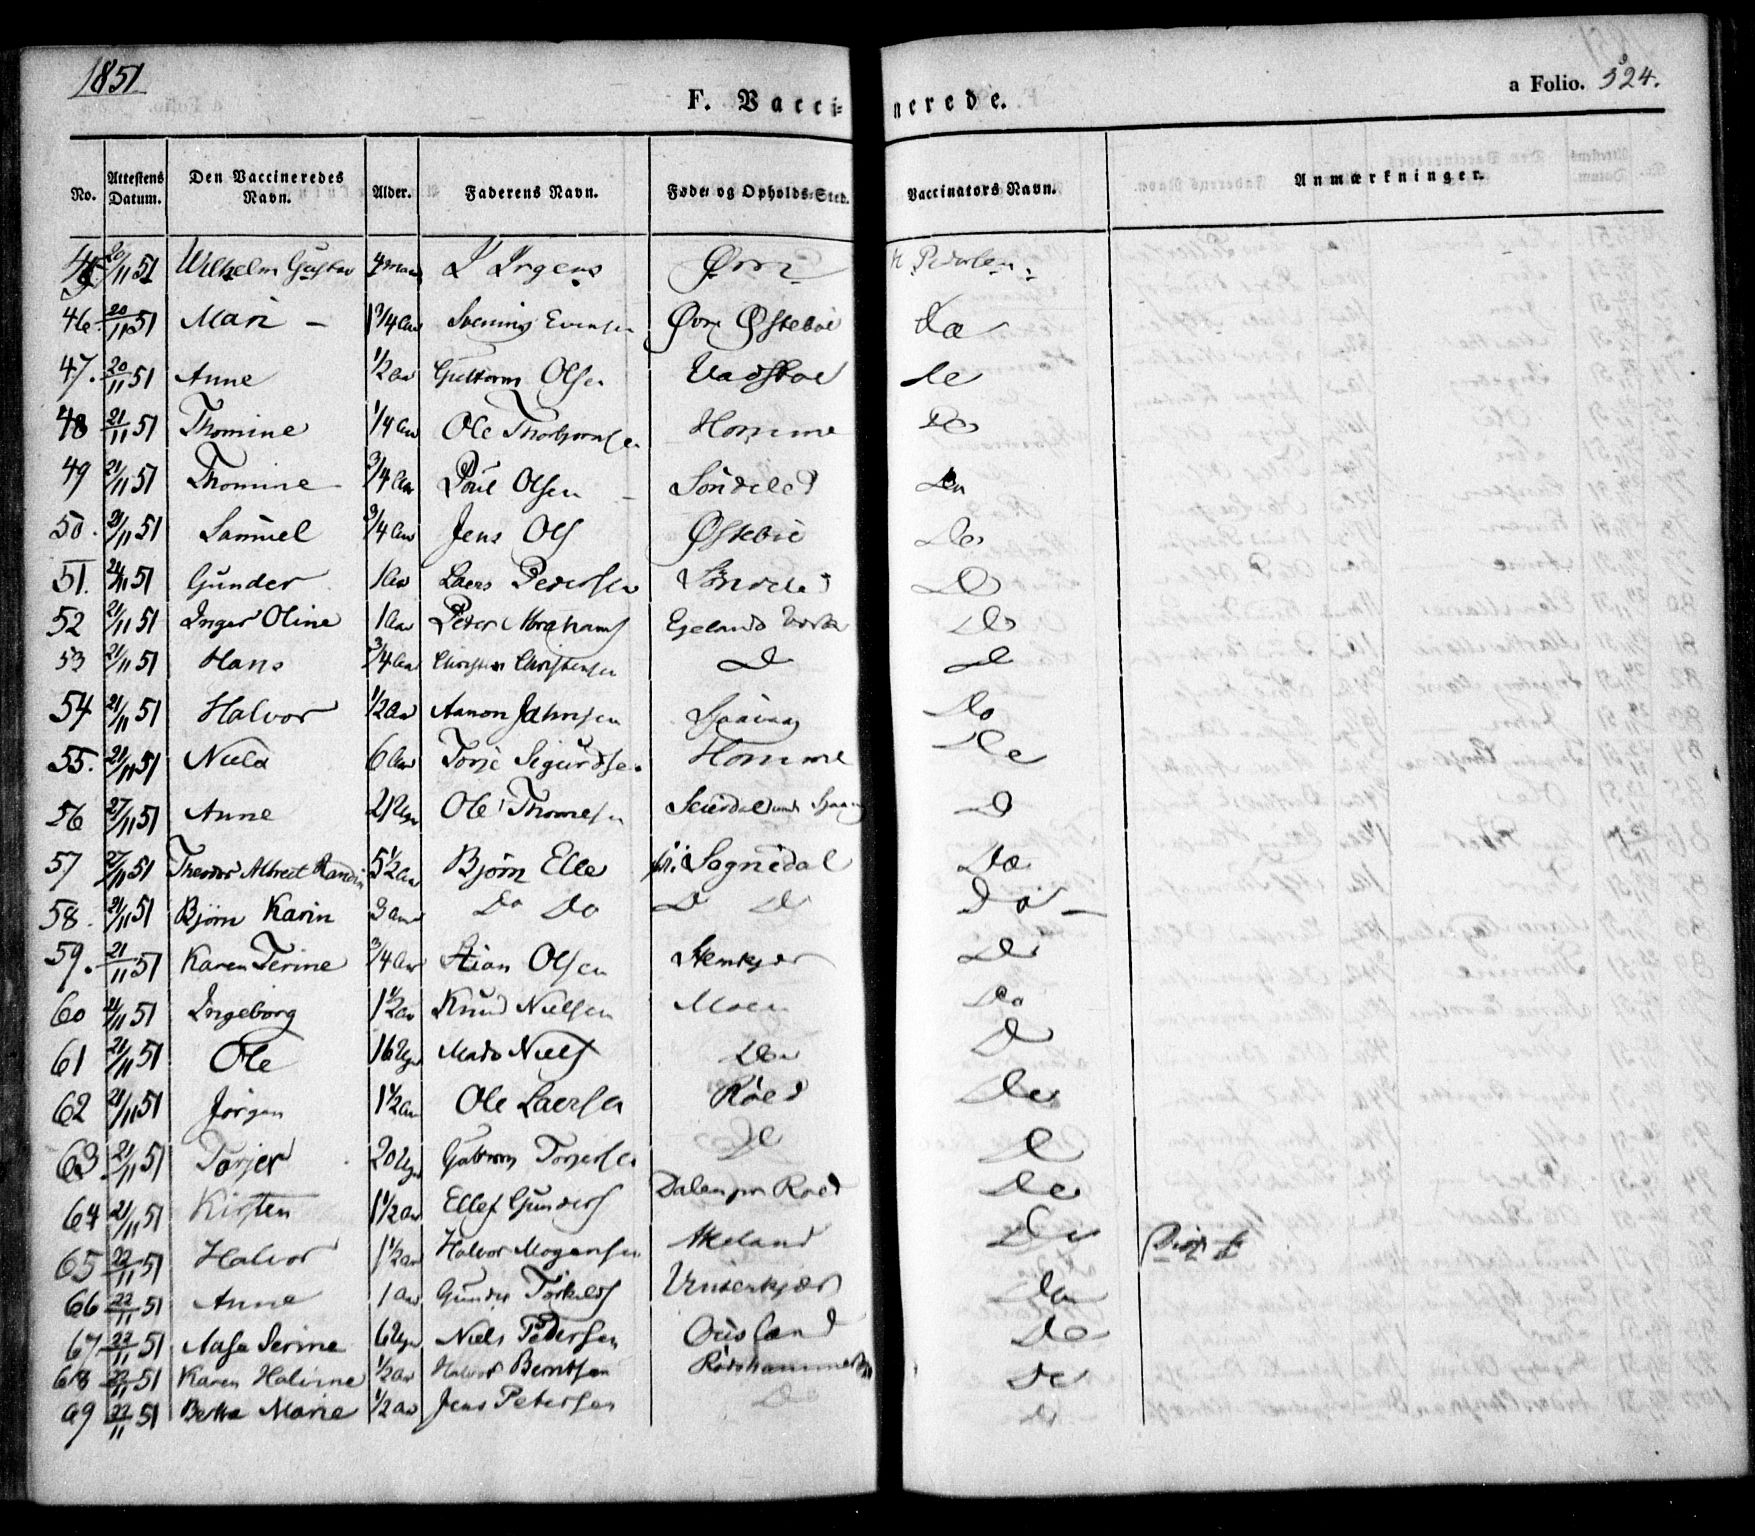 1851
F. Vaccinerede.
a Folio. 324.
No. Attestens Datum. Den Vaccineredes Navn. Alder. Faderens Navn. Føde- og Opholds-Sted. Vaccinators Navn. Anmærkninger.
45 20/11 51 Wilhelm Gustav 4 L Irgens Øvre Pedersen
46. 20/11 51 Mari - 1 3/4 Aar Evensen Øvre Østebøe Do
47. 20/11 51 Anne 1/2 Aar Guttorm Olsen Do
48 21/11 51 Thomine 1/4 Aar Ole Thorbjørnsen Homme Do
49 21/11 51 Thomine 3/4 Aar Poul Olsen Søndeled Do
50. 21/11 51 Samuel 3/4 Aar Jens Ols Østebøe Do
51. 21/11 51 Gunder 1 Aar Laers Pedersen Søndeled Do
52 21/11 51 Inger Oline 1 Aar Peder Abrahams Egelands Værk Do
53 21/11 51 Hans 3/4 Aar Christen Christensen Do Do
54 21/11 51 Halvor 1/2 Aar Aanon Jahnsen Do
55. 21/11 51 Niels 6 Aar Torje Sigurdsen Homme Do
56 27/11 51 Anne 21 Uger Ole Thomesen Do
57 27/11 51 Theodor Albrect 5 1/2 Aar Bjørn Elle Sognedal Do
58. 21/11 51 Bjørn Karin 3 Aar Do Do Do Do Do
59. 21/11 51 Karen Terine 3/4 Aar Stian Olsen Stenkjær Do
60 21/11 51 Ingeborg 1 1/2 Aar Knud Nielsen Moen Do
61 21/11 51 Ole 16 Uger Mads Niels Do Do
62 21/11 51 Jørgen 1 1/2 Aar Ole Laersen Røed Do
63 21/11 51 Torjer 20 Uger Guttorm Torjersen Do Do
64 21/11 51 Kirsten 1 1/2 Aar Ellef Gunders Dalen Røed Do
65 22/11 51 Halvor 1 1/2 Aar Halvor Mogensen Akeland Do
66 22/11 51 Anne 1 Aar Gunder Torkels Vinterkjær Do
67 22/11 51 Aase Serine 6 Uger Niels Pedersen Ousland Do
68 22/11 51 Karen Halvine 1/2 Aar Halvor Berntsen Do
69 22/11 51 Bertha Marie 1/2 Aar Jens Petersen Do Do